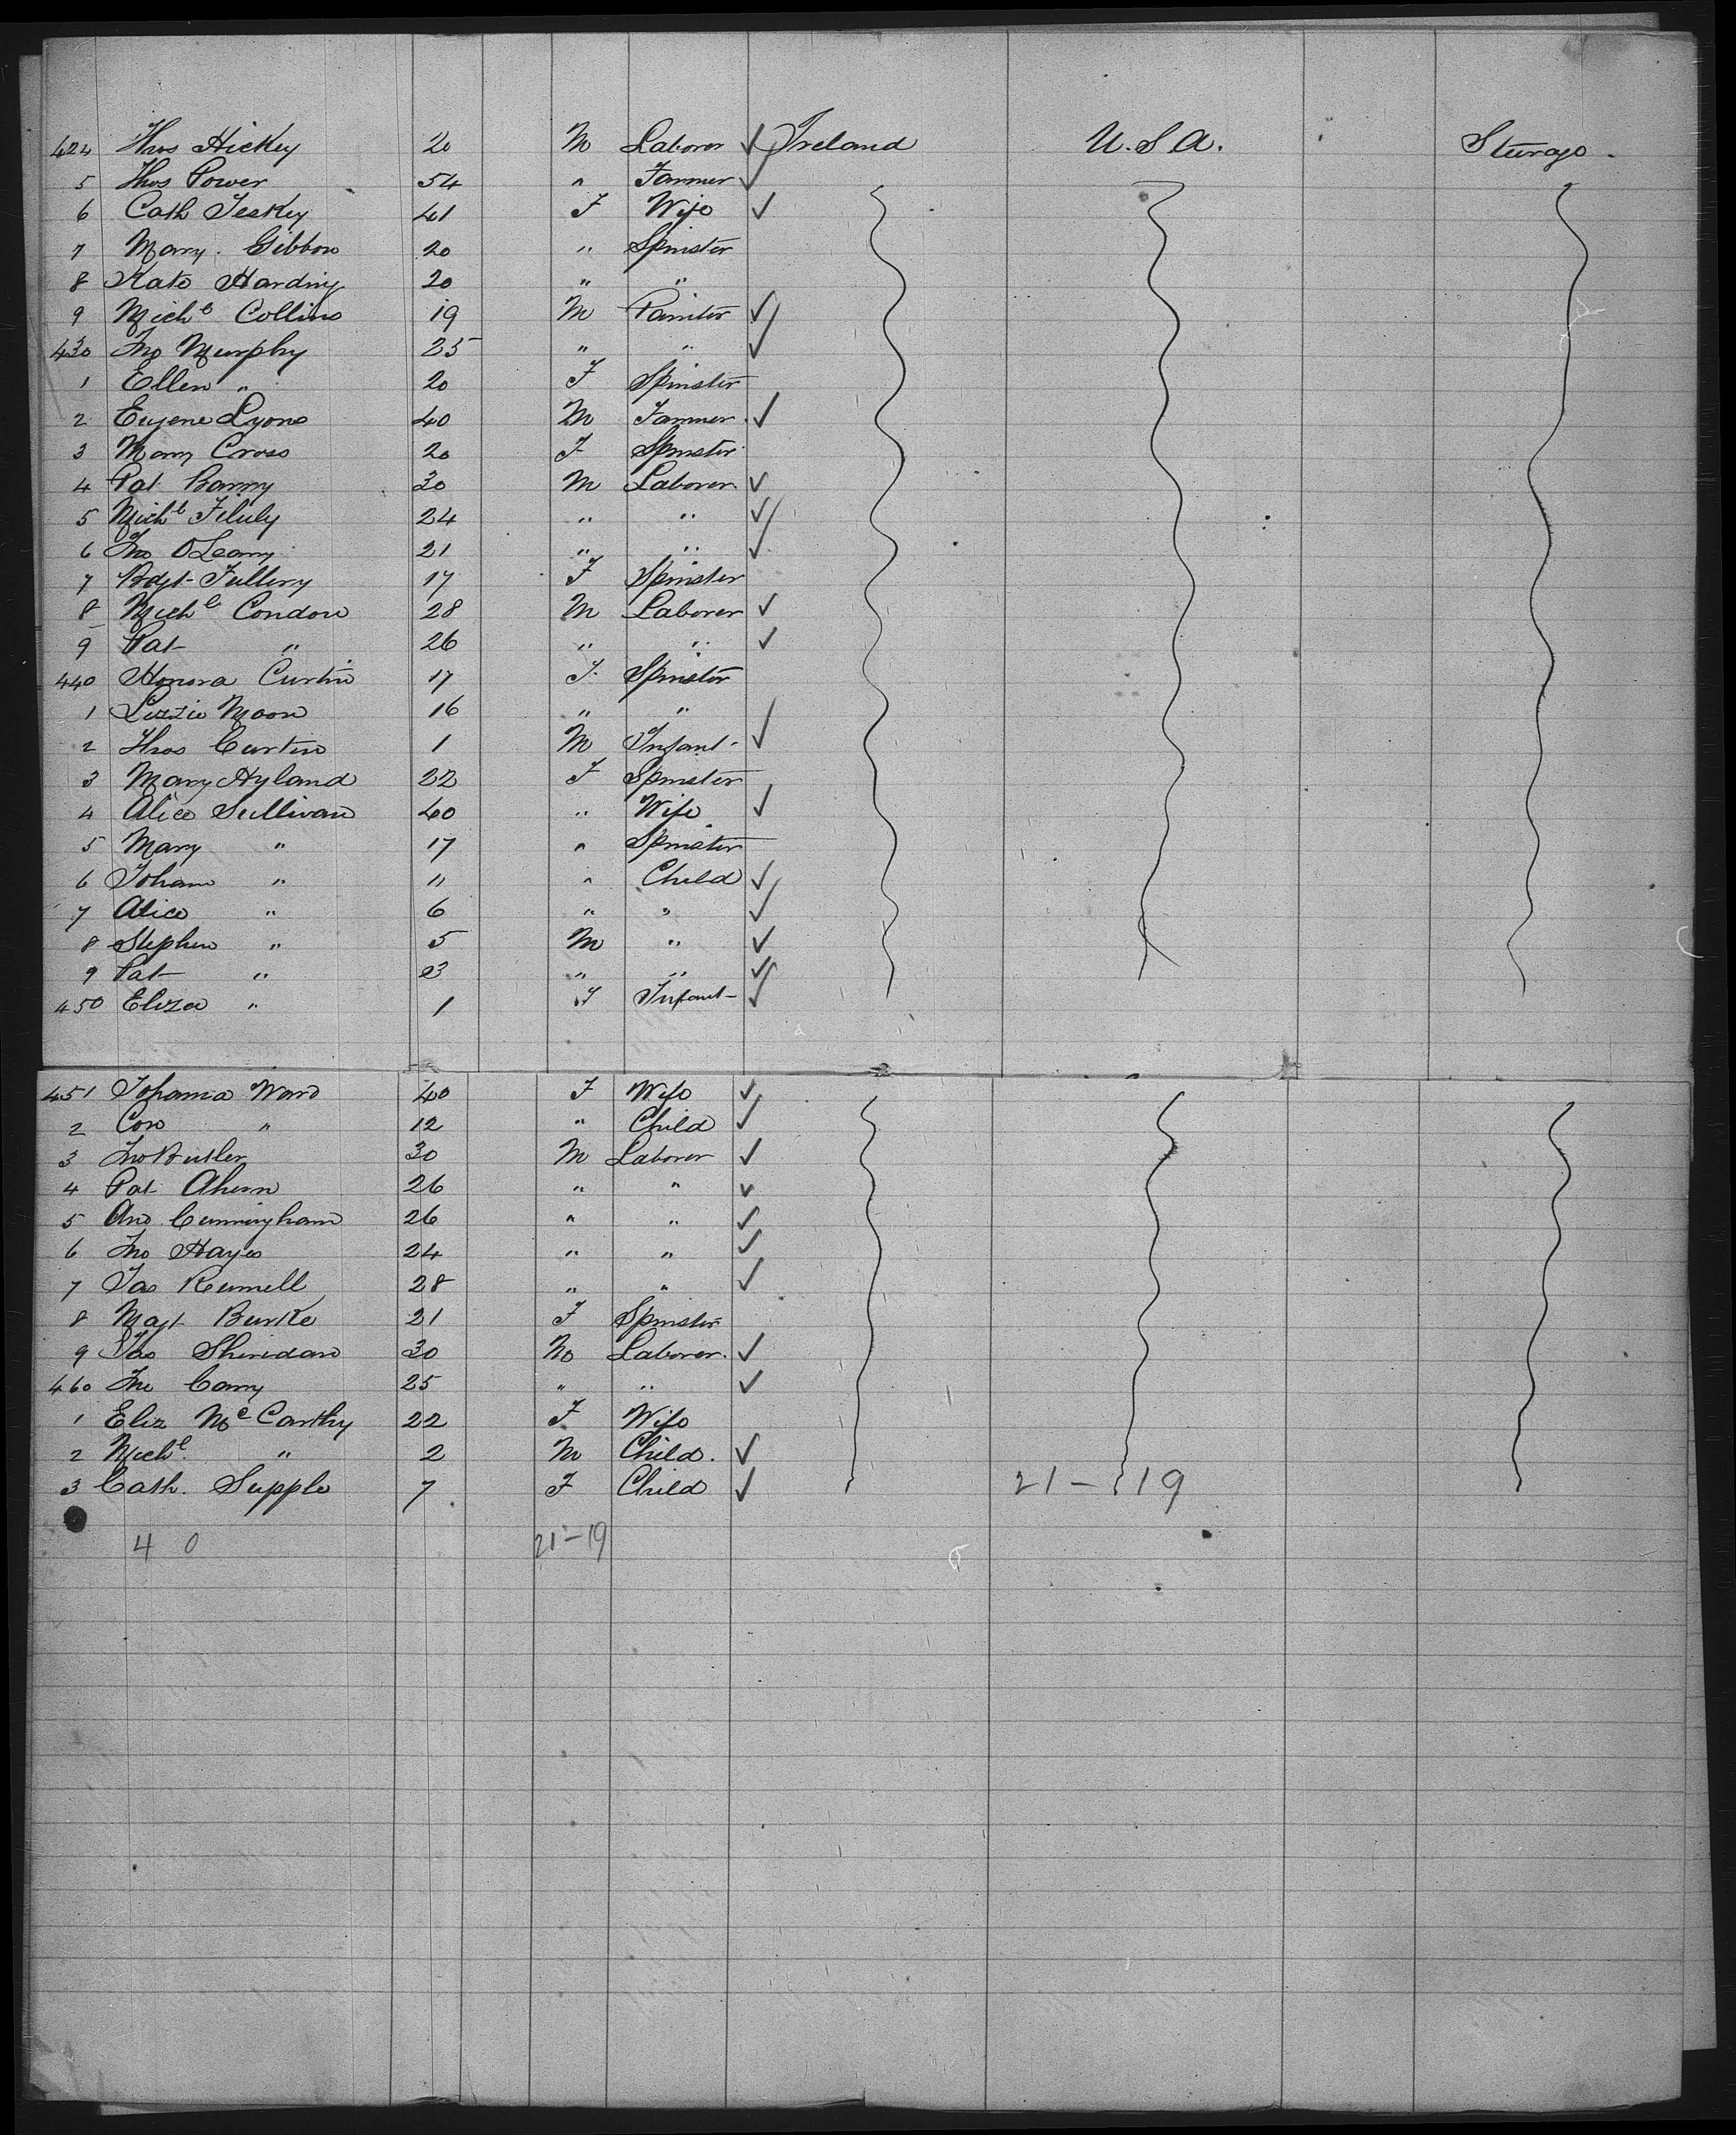 424 Thos Hickey 20 M Laborer ✓ Ireland U.S.A. Steerage.
5 Thos Power 54 " Farmer ✓
6 Cath Teskey 41 F Wife ✓
7 Mary Gibbon 20 " Spinster
8 Kate Harding 20 " "
9 Michl Collins 19 M Painter ✓
430 Jno Murphy 25 " " ✓
1 Ellen " 20 F Spinster
2 Eugene Lyons 40 M Farmer ✓
3 Mary Cross 20 F Spinster
4 Pat Barry 30 M Laborer ✓
5 Michl 24 " " ✓
6 Jno O'Leary 21 " " ✓
7 Bdgt Fullery 17 F Spinster
8 Michl Condon 28 M Laborer ✓
9 Pat " 26 " " ✓
440 Honora Curtin 17 F Spinster
1 Lizzie Moore 16 " "
2 Thos Curtin 1 M Infant ✓
3 Mary Hyland 22 F Spinster
4 Alice Sullivan 40 " Wife ✓
5 Mary " 17 " Spinster
6 Johana " 11 " Child ✓
7 Alice " 6 " " ✓
8 Stephen " 5 M " ✓
9 Pat " 3 " " ✓
450 Eliza " 1 F Infant ✓
451 Johanna Ward 40 F Wife ✓
2 Con " 12 " Child ✓
3 Jno Butler 30 M Laborer ✓
4 Pat Ahern 26 " " ✓
5 And Cunningham 26 " " ✓
6 Jno Hayes 24 " " ✓
7 Jas 28 " " ✓
8 Magt Burke 21 F Spinster
9 Jas Sheridan 30 M Laborer ✓
460 Jno Carry 25 " " ✓
1 Eliz McCarthy 22 F Wife
2 Michl " 2 M Child ✓
3 Cath. Supple 7 F Child ✓ 21-19
40 21-19